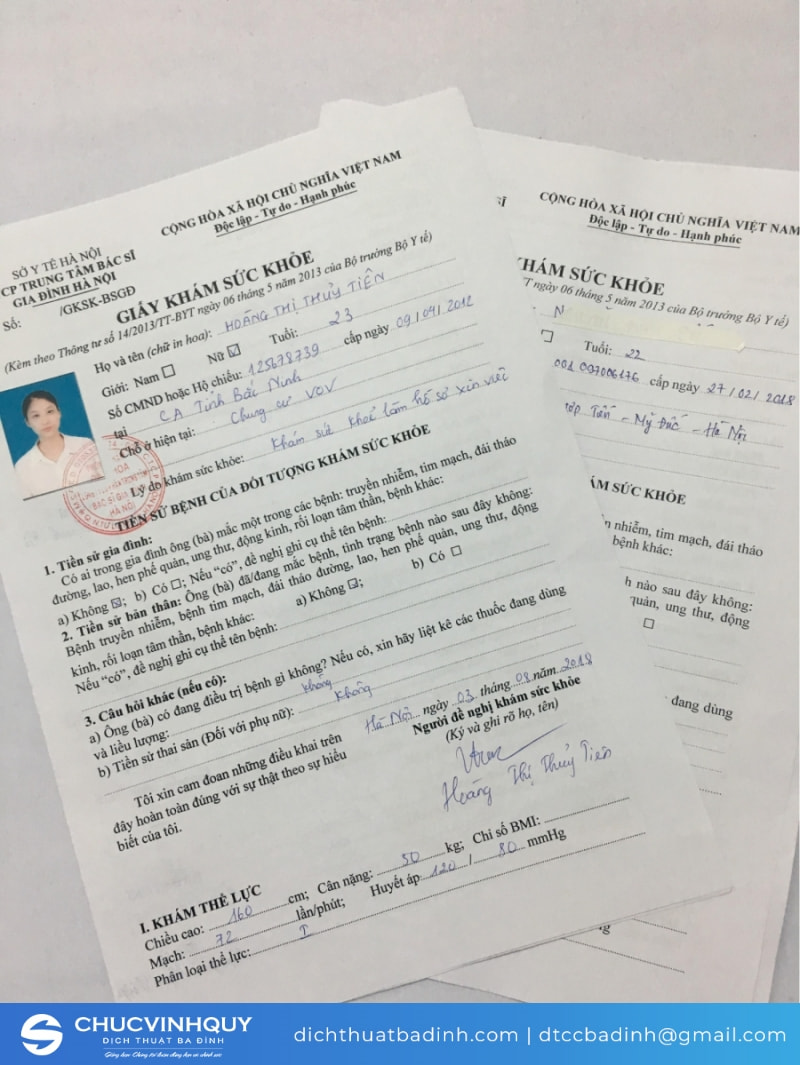 CỘNG HÒA XÃ HỘI CHỦ NGHĨA VIỆT NAM
Độc lập - Tự do - Hạnh phúc
SỞ Y TẾ HÀ NỘI
CP TRUNG TÂM BÁC SĨ
GIA ĐÌNH HÀ NỘI
Số: /GKSK-BSGĐ
GIẤY KHÁM SỨC KHỎE
(Kèm theo Thông tư số 14/2013/TT-BYT ngày 06 tháng 5 năm 2013 của Bộ trưởng Bộ Y tế)
Họ và tên (chữ in hoa): HOÀNG THỊ THỦY TIÊN
Giới: Nam ☐ Nữ ☑ Tuổi: 23
Số CMND hoặc Hộ chiếu: 125678739 cấp ngày 09/04/2012
tại CA Tỉnh Bắc Ninh
Chỗ ở hiện tại: Chung cư VOV
Lý do khám sức khỏe: Khám sức khoẻ làm hồ sơ xin việc
TIỀN SỬ BỆNH CỦA ĐỐI TƯỢNG KHÁM SỨC KHỎE
1. Tiền sử gia đình:
Có ai trong gia đình ông (bà) mắc một trong các bệnh: truyền nhiễm, tim mạch, đái tháo
đường, lao, hen phế quản, ung thư, động kinh, rối loạn tâm thần, bệnh khác:
a) Không ☒; b) Có ☐; Nếu “có”, đề nghị ghi cụ thể tên bệnh:
2. Tiền sử bản thân: Ông (bà) đã/đang mắc bệnh, tình trạng bệnh nào sau đây không:
Bệnh truyền nhiễm, bệnh tim mạch, đái tháo đường, lao, hen phế quản, ung thư, động
kinh, rối loạn tâm thần, bệnh khác: a) Không ☑; b) Có ☐
Nếu “có”, đề nghị ghi cụ thể tên bệnh:
3. Câu hỏi khác (nếu có):
a) Ông (bà) có đang điều trị bệnh gì không? Nếu có, xin hãy liệt kê các thuốc đang dùng
và liều lượng: Không
b) Tiền sử thai sản (Đối với phụ nữ): Không
Hà Nội ngày 03 tháng 08 năm 2018
Tôi xin cam đoan những điều khai trên
đây hoàn toàn đúng với sự thật theo sự hiểu
biết của tôi.
Người đề nghị khám sức khỏe
(Ký và ghi rõ họ, tên)
Hoàng Thị Thuỷ Tiên
I. KHÁM THỂ LỰC
Chiều cao: 160 cm; Cân nặng: 50 kg; Chỉ số BMI:
Mạch: 72 lần/phút; Huyết áp 120 / 80 mmHg
Phân loại thể lực: I
BÁC SĨ GIA
HÀ NỘI
CỘNG HÒA XÃ HỘI CHỦ NGHĨA VIỆT NAM
Độc lập - Tự do - Hạnh phúc
KHÁM SỨC KHỎE
ngày 06 tháng 5 năm 2013 của Bộ trưởng Bộ Y tế)
N
☐ Tuổi: 22
001 097006176 cấp ngày 27/02/2018
Tiến - Mỹ Đức - Hà Nội
KHÁM SỨC KHỎE
nhiễm, tim mạch, đái tháo
bệnh khác:
nào sau đây không:
quản, ung thư, động
☐
đang dùng
CHUCVINHQUY
DỊCH THUẬT BA ĐÌNH
dichthuatbadinh.com | dtccbadinh@gmail.com